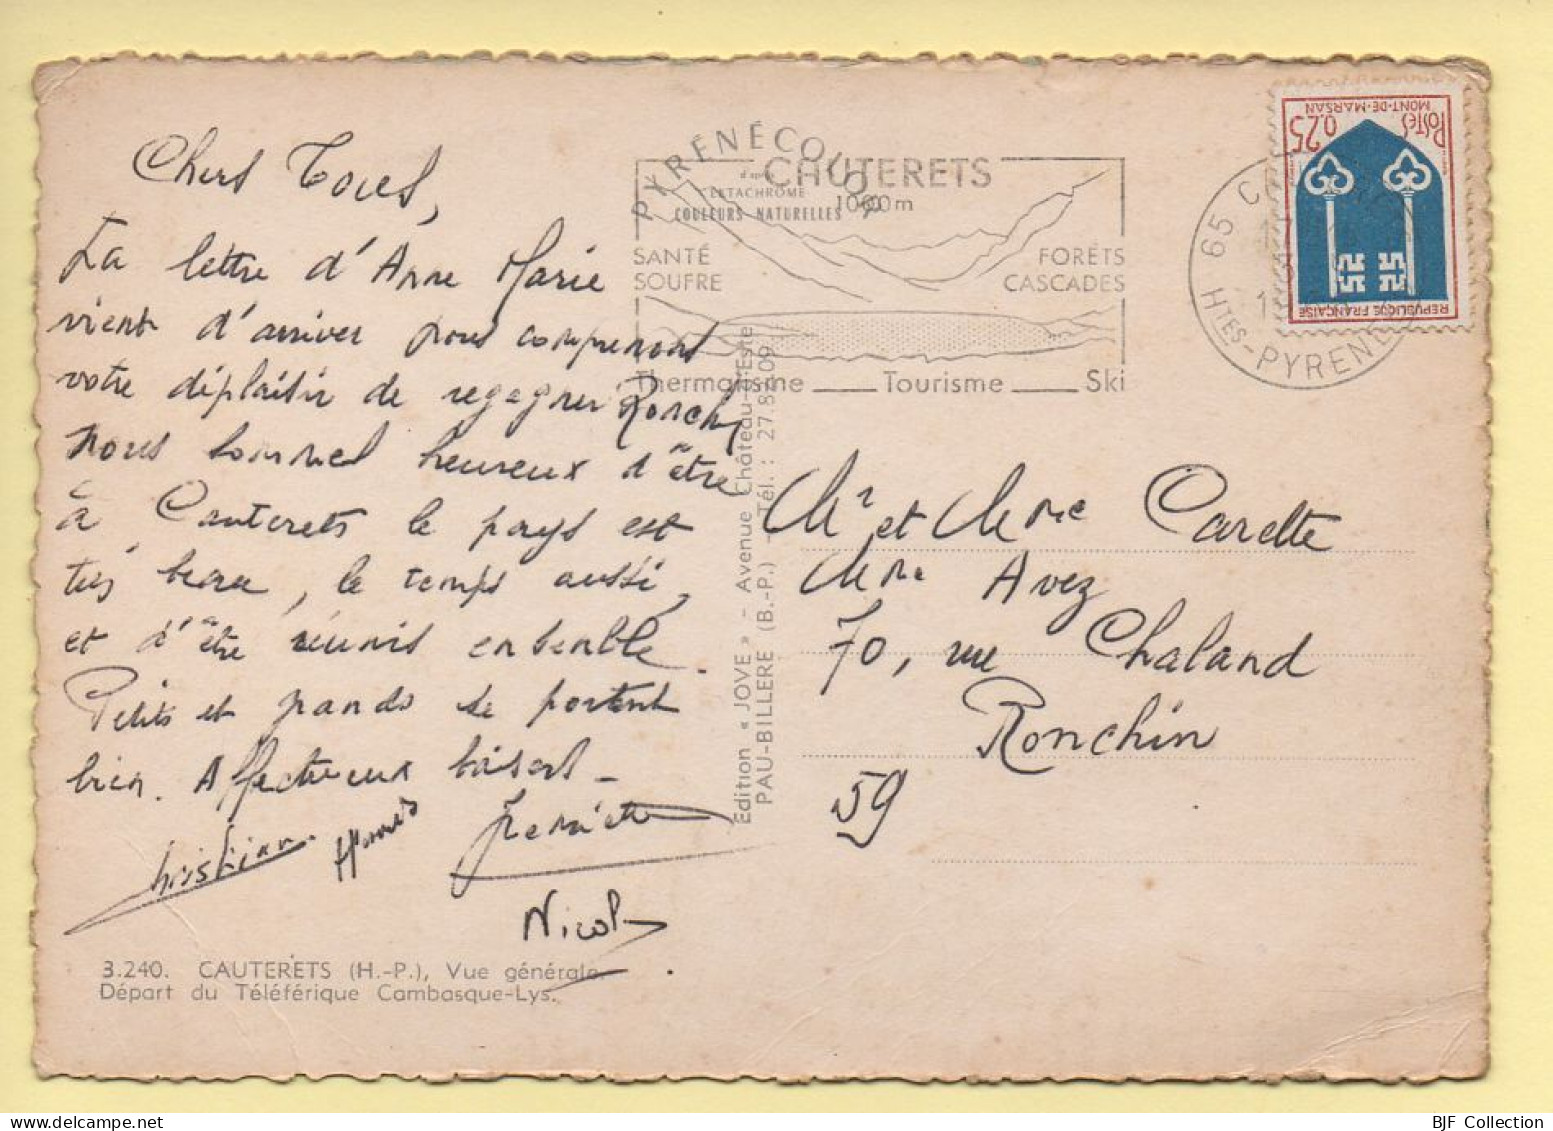 Chers Tous,
La lettre d'Anne Marie
vient d'arriver nous comprenons
votre déplaisir de regagner Ronchin
nous sommes heureux d'être
à Cauterets le pays est
très beau, le temps aussi,
et d'être réunis ensemble.
Petits et grands se portent
bien. Affectueux baisers -
Christian
Nicole
3.240. CAUTERETS (H.-P.), Vue générale.
Départ du Téléférique Cambasque-Lys.
PYRÉNÉCOULOR
d'après
EKTACHROME
COULEURS NATURELLES
CAUTERETS
1000m
SANTÉ
SOUFRE
FORÊTS
CASCADES
Thermalisme ___ Tourisme ___ Ski
Edition « JOVE » - Avenue Château-d'Este
PAU-BILLERE (B.-P.) - Tél. : 27.86.09
65
HTES-PYRENEES
POSTES
0,25
MONT-DE-MARSAN
REPUBLIQUE FRANÇAISE
Mr et Mme Carette
Mme Avez
70, rue Chaland
Ronchin
59
BJF Collection